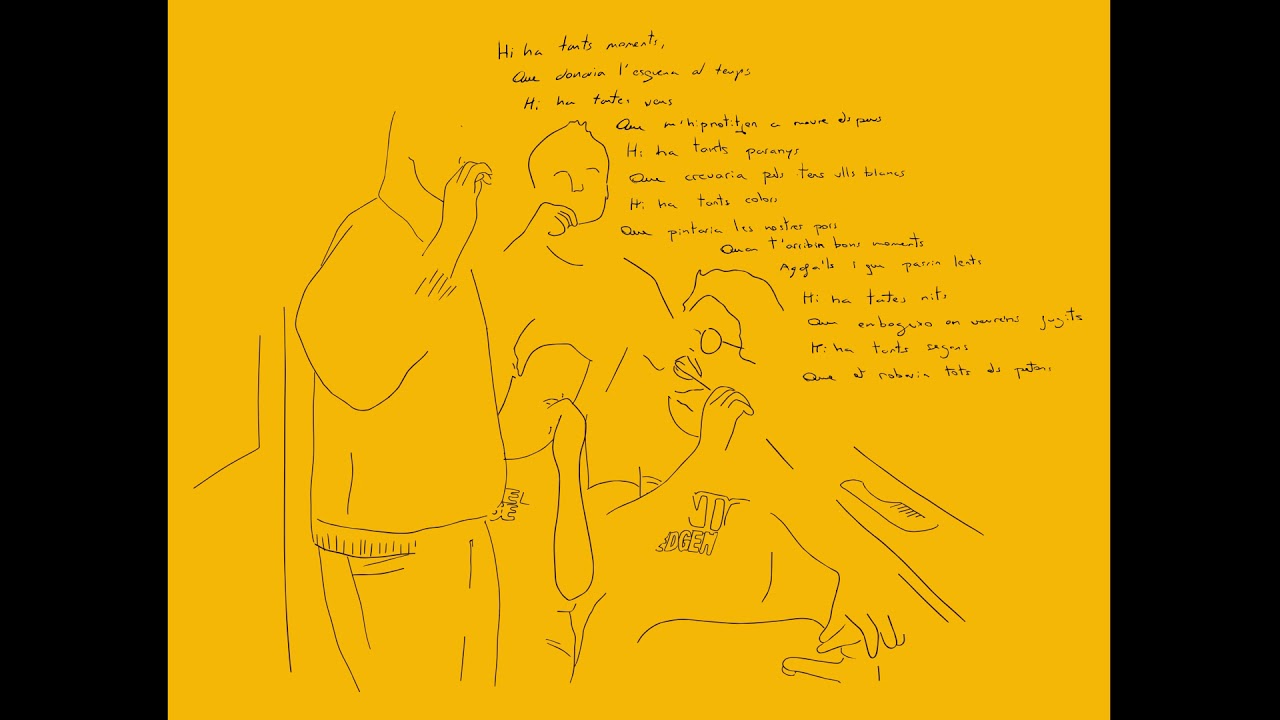 Hi ha tants moments,
Que donaria l'esquena al temps
Hi ha tantes veus
Que m'hipnotitzen a moure els peus
Hi ha tants paranys
Que creuaria pels teus ulls blancs
Hi ha tants colors
Que pintaria les nostres pors
Quan t'arribin bons moments
Agafa'ls i que passin lents
Hi ha tantes nits
Que embogeixo en veure'ns fugits
Hi ha tants segons
Que et robaria tots els petons
EDGEM